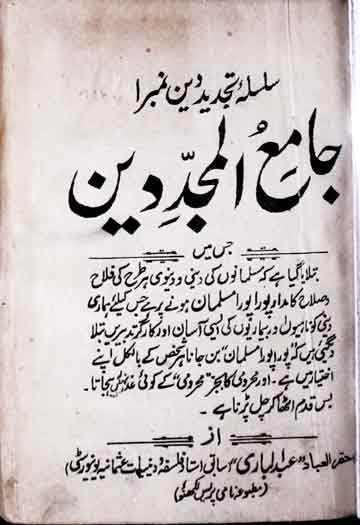 سلسلۂ تجدید دین نمبر ۱
جامع المجدّدین
جس میں
بتلایا گیا ہے کہ مسلمانوں کی دینی و دنیوی ہر طرح کی فلاح
و صلاح کا مدار پورا پورا مسلمان ہونے پر ہے جس کیلئے ہماری
دینی کوتاہیوں و بیماریوں کی ایسی آسان اور کارگر تدبیریں بتلا
دی گئی ہیں کہ "پورا پورا مسلمان" بن جانا ہر شخص کے بالکل اپنے
اختیار میں ہے۔ اور محرومی کا بجز "محرومی" کے کوئی عذر نہیں رہ جاتا۔
بس قدم اٹھا کر چل پڑنا ہے۔
از
احقر العباد عبدالباری (سابق استاذ فلسفہ و دینیات عثمانیہ یونیورسٹی)
(مطبوعہ نامی پریس لکھنؤ)